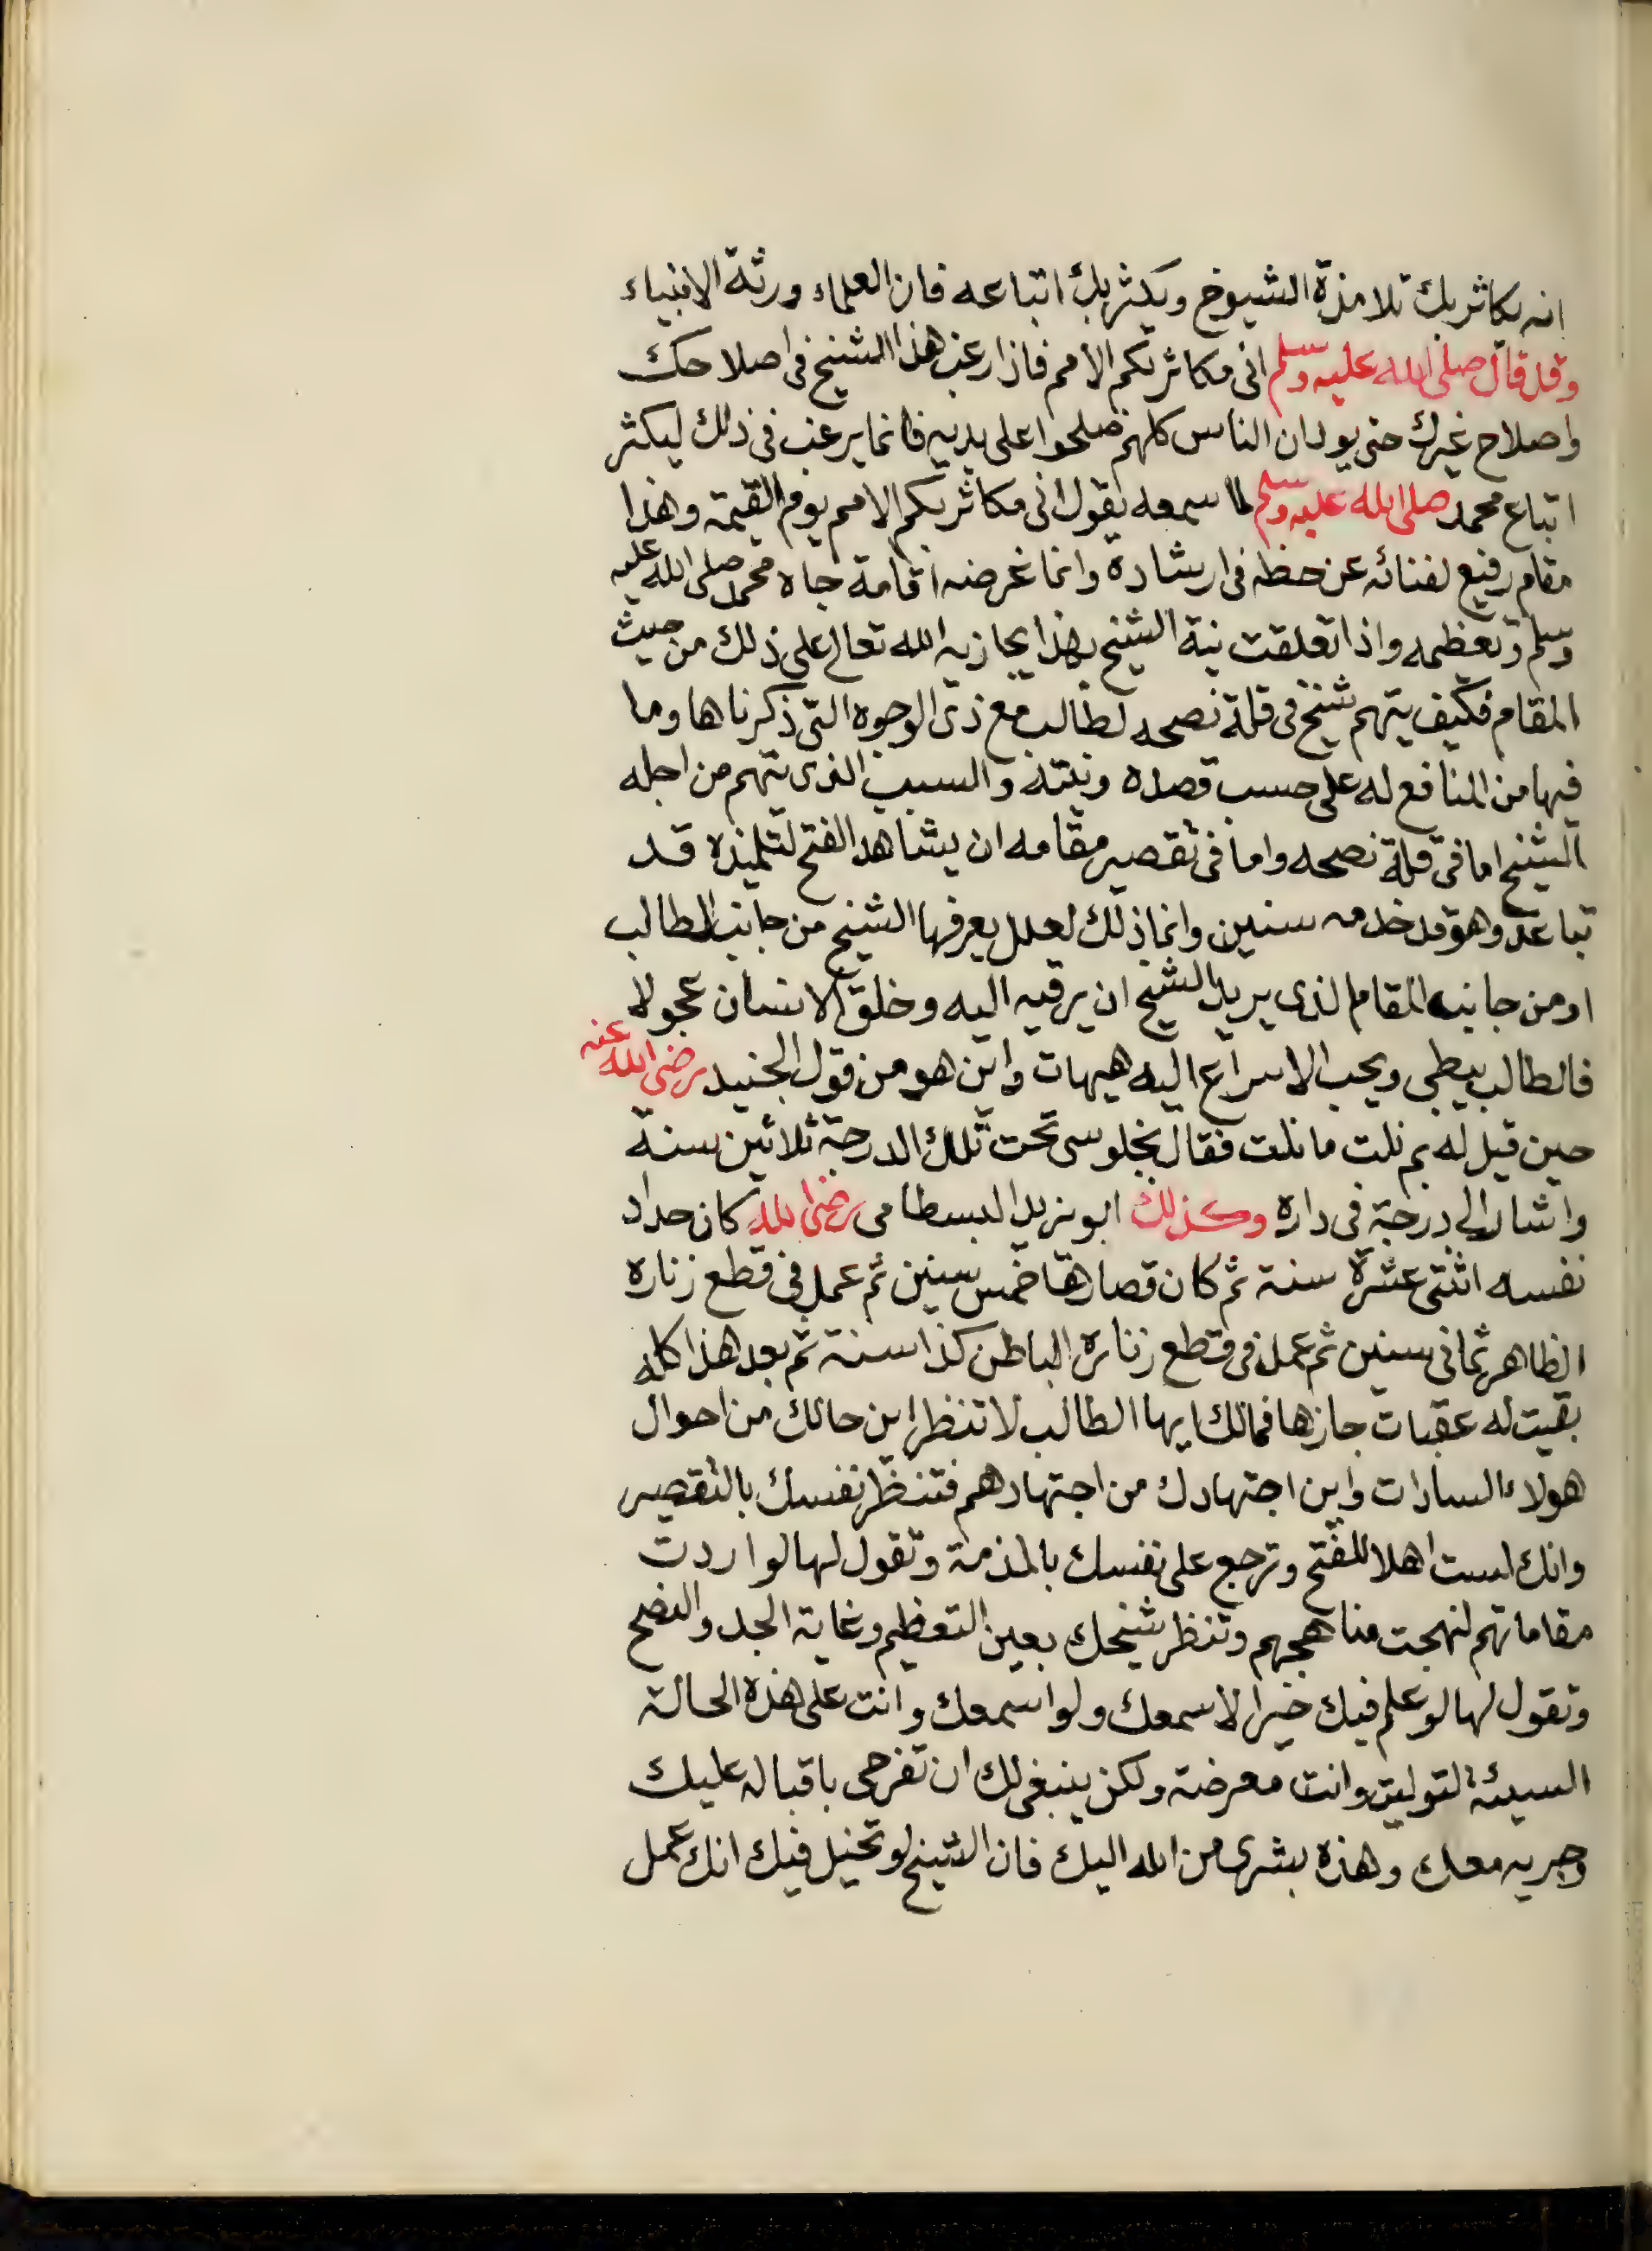 انه يكاثر بك تلامذة الشيوخ ويكثر بك اتباعه فان العلماء ورثة الانبياء
وقد قال صلى الله عليه وسلم انى مكاثر بكم الامم فاذا رغب هذا الشيخ فى اصلاحك
واصلاح غيرك حتى يود ان الناس كلهم صلحوا على يديه فانما يرغب فى ذلك ليكثر
اتباع محمد صلى الله عليه وسلم لما سمعه يقول انى مكاثر بكم الامم يوم القيمة وهذا
مقام رفيع لفنائه عن حظه فى ارشاده وانما غرضه اقامة جاه محمد صلى الله عليه
وسلم وتعظيمه واذا تعلقت نية الشيخ بهذا يجازيه الله تعالى على ذلك من حيث
المقام فكيف يتهم شيخ فى قلة نصحه لطالب مع ذى الوجوه التى ذكرناها وما
فيها من المنافع له على حسب قصده ونيته والسبب الذى يتهم من اجله
الشيخ اما فى قلة نصحه واما فى تقصير مقامه ان يشاهد الفتح لتلميذه قد
تباعد وهو قد خدمه سنين وانما ذلك لعلل يعرفها الشيخ من جانب الطالب
او من جانب المقام الذى يريد الشيخ ان يرقيه اليه وخلق الانسان عجولا
فالطالب يبطى ويحب الاسراع اليه هيهات واين هو من قول الجنيد رضى الله عنه
حين قيل له بم نلت ما نلت فقال بجلوسى تحت تلك الدرجة ثلاثين سنة
واشار الى درجة فى داره وكذلك ابو يزيد البسطامى رضى الله كان حداد
نفسه اثنتى عشرة سنة ثم كان قصارها خمس سنين ثم عمل فى قطع زناره
الظاهر ثمانى سنين ثم عمل فى قطع زناره الباطن كذا سنة ثم بعد هذا كله
بقيت له عقبات جازها فمالك ايها الطالب لا تنظر اين حالك من احوال
هولاء السادات واين اجتهادك من اجتهادهم فتنظر نفسك بالتقصير
وانك لست اهلا للفتح وترجع على نفسك بالمذمة وتقول لها لو اردت
مقاماتهم لنهجت مناهجهم وتنظر شيخك بعين التعظيم وغاية الجد والنصح
وتقول لها لو علم فيك خيرا لاسمعك ولو اسمعك وانت على هذه الحالة
السيئة لتوليت وانت معرضة ولكن ينبغى لك ان تفرحى باقباله عليك
وجريه معك وهذه بشرى من الله اليك فان الشيخ لو تخيل فيك انك عمل